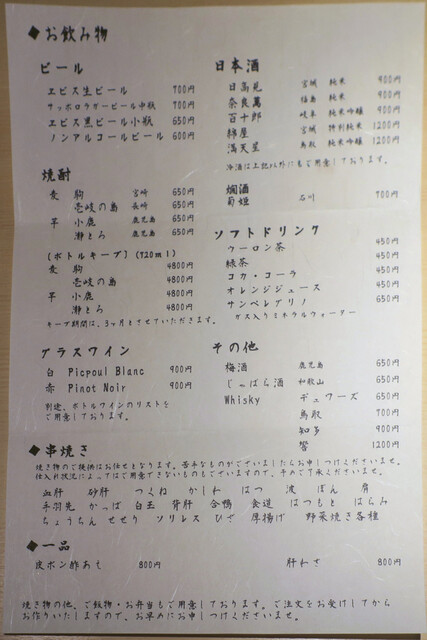 ◆お飲み物
ビール
ヱビス生ビール 700円
サッポロラガービール中瓶 700円
ヱビス黒ビール小瓶 650円
ノンアルコールビール 600円
焼酎
麦 駒 宮崎 650円
壱岐の島 長崎 650円
芋 小鹿 鹿児島 650円
瀞とろ 鹿児島 650円
(ボトルキープ)(720ml)
麦 駒 4800円
壱岐の島 4800円
芋 小鹿 4800円
瀞とろ 4800円
キープ期間は、3ヶ月とさせていただきます。
グラスワイン
白 Picpoul Blanc 900円
赤 Pinot Noir 900円
別途、ボトルワインのリストを
ご用意しております。
日本酒
日高見 宮城 純米 900円
奈良萬 福島 純米 900円
百十郎 岐阜 純米吟醸 900円
綿屋 宮城 特別純米 1200円
満天星 鳥取 純米吟醸 1200円
冷酒は上記以外にもご用意しております。
燗酒
菊姫 石川 700円
ソフトドリンク
ウーロン茶 450円
緑茶 450円
コカ・コーラ 450円
オレンジジュース 450円
サンペレグリノ 650円
ガス入りミネラルウォーター
その他
梅酒 鹿児島 650円
じゃばら酒 和歌山 650円
Whisky デュワーズ 650円
鳥取 700円
知多 900円
響 1200円
◆串焼き
焼き物のご提供はお任せとなります。苦手なものがございましたらお申しつけくださいませ。
仕入れ状況によってはご用意できないものもございますので、予めご了承くださいませ。
血肝 砂肝 つくね かしわ はつ 波 ぼん 肩
手羽先 かっぱ 白玉 背肝 合鴨 食道 はつもと はらみ
ちょうちん せせり ソリレス ひざ 厚揚げ 野菜焼き各種
◆一品
皮ポン酢あえ 800円
肝わさ 800円
焼き物の他、ご飯物・お弁当もご用意しております。ご注文をお受けしてから
お作りいたしますので、お早めにお申しつけくださいませ。